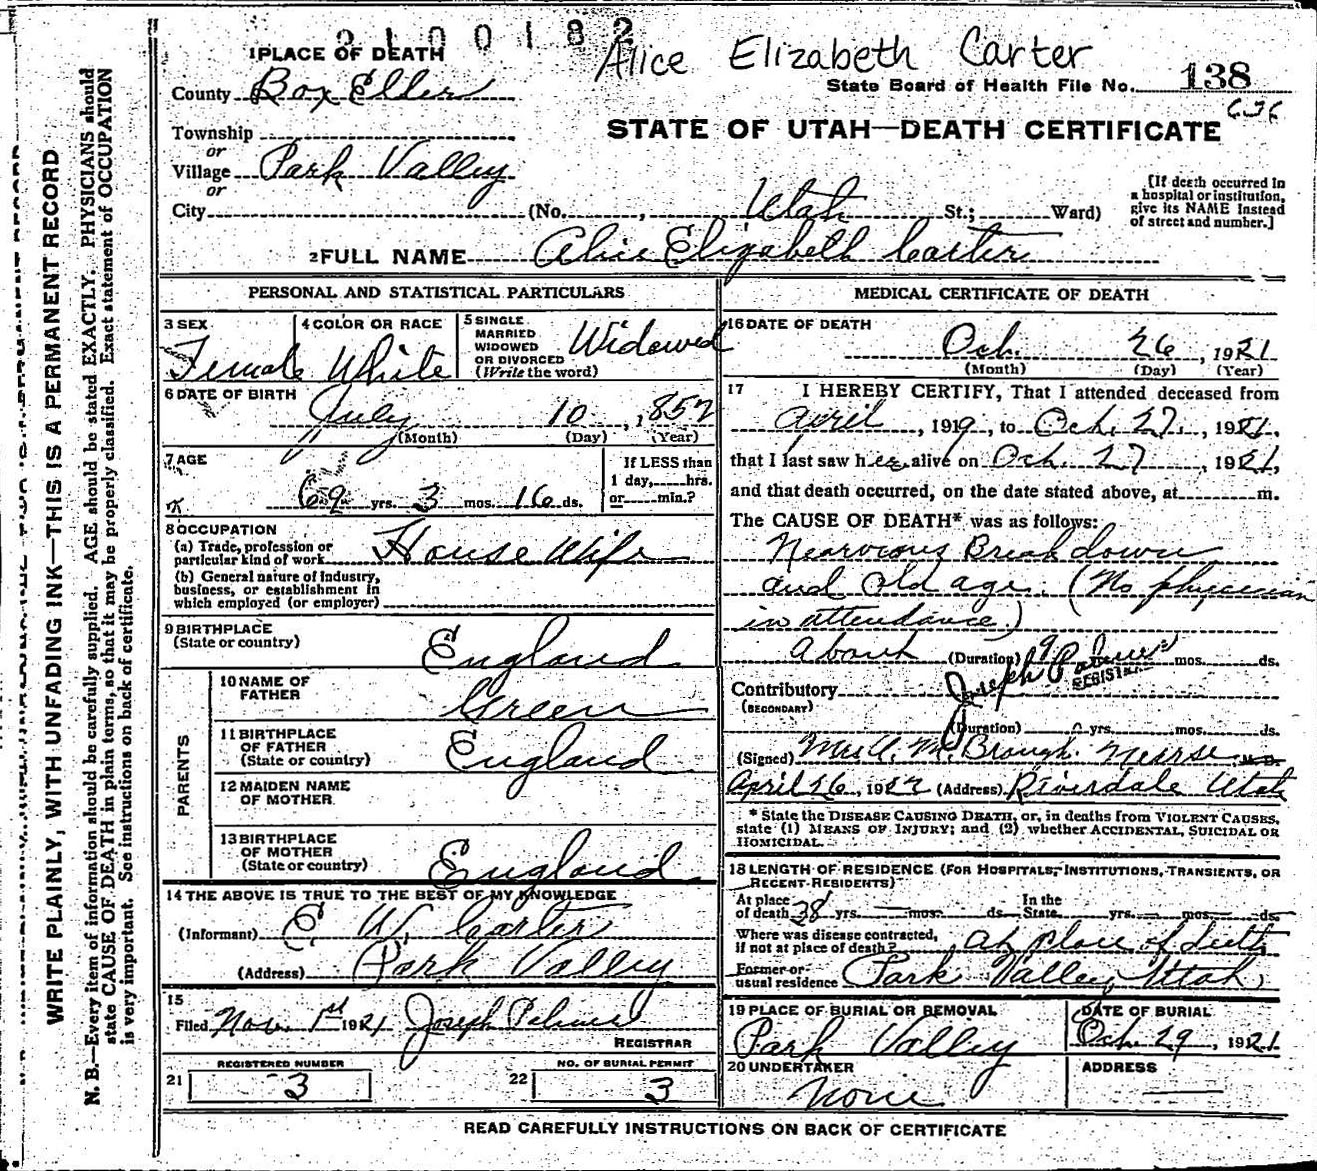 2100182
Alice Elizabeth Carter
1 PLACE OF DEATH
County Box Elder
State Board of Health File No. 138
636
STATE OF UTAH—DEATH CERTIFICATE
Township
or
Village Park Valley
or
City (No. , Utah St.; Ward)
[If death occurred in a hospital or institution, give its NAME instead of street and number.]
2 FULL NAME Alice Elizabeth Carter
PERSONAL AND STATISTICAL PARTICULARS
3 SEX Female
4 COLOR OR RACE White
5 SINGLE MARRIED WIDOWED OR DIVORCED (Write the word) Widowed
6 DATE OF BIRTH July 10, 1852
(Month) (Day) (Year)
7 AGE 69 yrs. 3 mos. 16 ds.
If LESS than 1 day, hrs. or min.?
8 OCCUPATION
(a) Trade, profession or particular kind of work House Wife
(b) General nature of industry, business, or establishment in which employed (or employer)
9 BIRTHPLACE (State or country) England
PARENTS
10 NAME OF FATHER Green
11 BIRTHPLACE OF FATHER (State or country) England
12 MAIDEN NAME OF MOTHER
13 BIRTHPLACE OF MOTHER (State or country) England
14 THE ABOVE IS TRUE TO THE BEST OF MY KNOWLEDGE
(Informant) E. W. Carter
(Address) Park Valley
15 Filed Nov. 1st 1921 Joseph Palmer
REGISTRAR
REGISTERED NUMBER
21 3
NO. OF BURIAL PERMIT
22 3
MEDICAL CERTIFICATE OF DEATH
16 DATE OF DEATH
Oct. 26, 1921
(Month) (Day) (Year)
17 I HEREBY CERTIFY, That I attended deceased from
April, 1919, to Oct. 27, 1921,
that I last saw her alive on Oct. 27, 1921,
and that death occurred, on the date stated above, at m.
The CAUSE OF DEATH* was as follows:
Nearvious Breakdown
and old age. (No physician
in attendance.)
About (Duration) 9 mos. ds.
Joseph Palmer
REGISTRAR
Contributory
(SECONDARY)
(Duration) yrs. mos. ds.
(Signed) Mrs. A. M. Brough. Nearse M.D.
April 26, 1922 (Address) Riverdale Utah
* State the DISEASE CAUSING DEATH, or, in deaths from VIOLENT CAUSES, state (1) MEANS OF INJURY; and (2) whether ACCIDENTAL, SUICIDAL OR HOMICIDAL.
18 LENGTH OF RESIDENCE (FOR HOSPITALS, INSTITUTIONS, TRANSIENTS, OR RECENT RESIDENTS)
At place of death 38 yrs. — mos. ds. In the State yrs. — mos. — ds.
Where was disease contracted, if not at place of death? at place of death
Former or usual residence Park Valley, Utah
19 PLACE OF BURIAL OR REMOVAL
Park Valley
DATE OF BURIAL
Oct. 29, 1921
20 UNDERTAKER
None
ADDRESS
READ CAREFULLY INSTRUCTIONS ON BACK OF CERTIFICATE
WRITE PLAINLY, WITH UNFADING INK—THIS IS A PERMANENT RECORD
N. B.—Every item of information should be carefully supplied. AGE should be stated EXACTLY. PHYSICIANS should
state CAUSE OF DEATH in plain terms, so that it may be properly classified. Exact statement of OCCUPATION
is very important. See instructions on back of certificate.